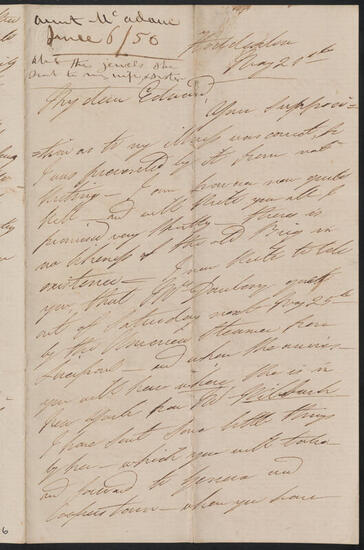 Aunt McAdam
June 6/50
abt the jewels she
sent to my wife &
May 20th
My dear Edward,
Your supposi-
tion as to my illness was correct
I was prevented by it from
writing — I am however now quite
well — and will write you all I
promised very shortly — there is
no likeness of the old in
existence — I now write to tell
you, that Mr goes
out of Saturday next May 25th
by the American Steamer from
Liverpool — and when she arrives
you will hear where she is in
New York from
I have sent some little things
by her — which you will
and forward to Geneva and
Cooperstown — when you have
6